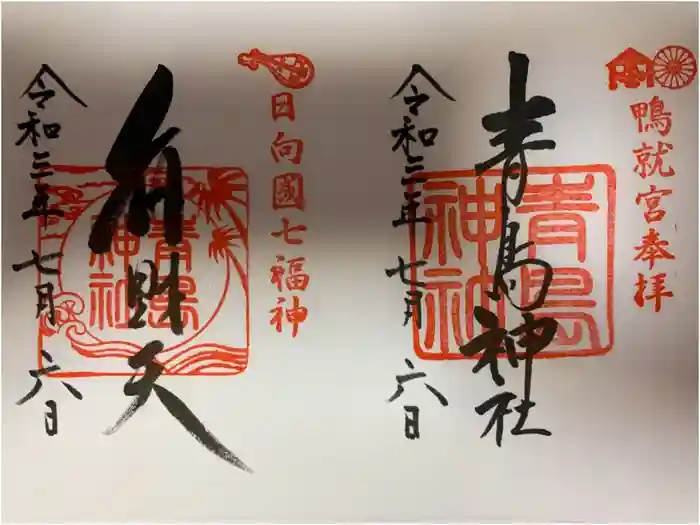 鴨就宮奉拝
青島神社
青島神社
令和三年七月六日
日向國七福神
弁財天
青島神社
令和三年七月六日